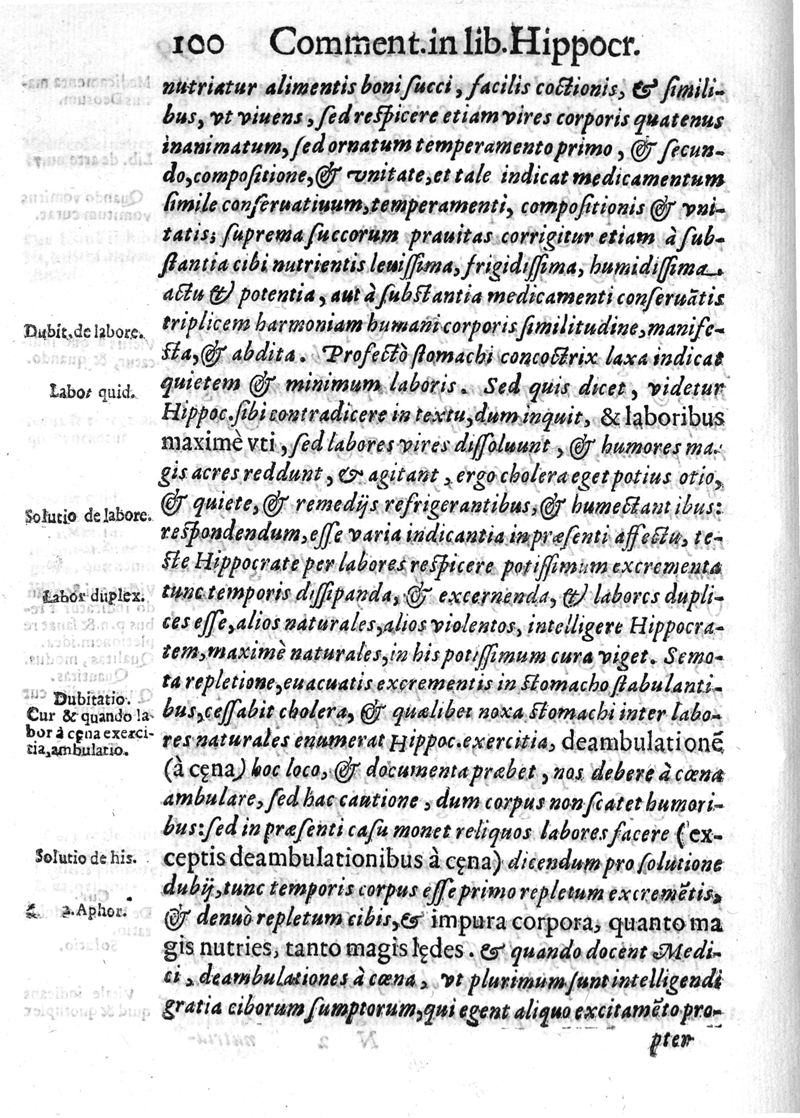 100 Comment. in lib. Hippocr.
nutriatur alimentis boni ſucci, facilis coctionis, & ſimili-
bus, vt viuens, ſed reſpicere etiam vires corporis quatenus
inanimatum, ſed ornatum temperamento primo, & ſecun-
do, compoſitione, & vnitate, et tale indicat medicamentum
ſimile conſeruatiuum, temperamenti, compoſitionis & vni-
tatis; ſuprema ſuccorum prauitas corrigitur etiam à ſub-
ſtantia cibi nutrientis leuiſſima, frigidiſſima, humidiſſima
actu & potentia, aut à ſubſtantia medicamenti conſeruãtis
Dubit. de labore.
triplicem harmoniam humani corporis ſimilitudine, manife-
ſta, & abdita. Profectò ſtomachi concoctrix laxa indicat
Labor quid.
quietem & minimum laboris. Sed quis dicet, videtur
Hippoc. ſibi contradicere in textu, dum inquit, & laboribus
maximè vti, ſed labores vires diſſoluunt, & humores ma-
gis acres reddunt, & agitant, ergo cholera eget potius otio,
Solutio de labore.
& quiete, & remedijs refrigerantibus, & humectantibus:
reſpondendum, eſſe varia indicantia in præſenti affectu, te-
ſte Hippocrate per labores reſpicere potiſſimum excrementa
Labor duplex.
tunc temporis diſſipanda, & excernenda, & labores dupli-
ces eſſe, alios naturales, alios violentos, intelligere Hippocra-
tem, maximè naturales, in his potiſſimum cura viget. Semo-
ta repletione, euacuatis excrementis in ſtomacho ſtabulanti-
Dubitatio.
Cur & quando la
bor à cęna exerci-
tia, ambulatio.
bus, ceſſabit cholera, & quælibet noxa ſtomachi inter labo-
res naturales enumerat Hippoc. exercitia, deambulationẽ
(à cęna) hoc loco, & documenta præbet, nos debere à cœna
ambulare, ſed hac cautione, dum corpus non ſcatet humori-
bus: ſed in præſenti caſu monet reliquos labores facere (ex-
Solutio de his.
ceptis deambulationibus à cęna) dicendum pro ſolutione
dubij, tunc temporis corpus eſſe primo repletum excremẽtis,
2. Aphor.
& denuò repletum cibis, & impura corpora, quanto ma
gis nutries, tanto magis lędes. & quando docent Medi-
ci, deambulationes à cœna, vt plurimum ſunt intelligendi
gratia ciborum ſumptorum, qui egent aliquo excitamẽto pro-
pter